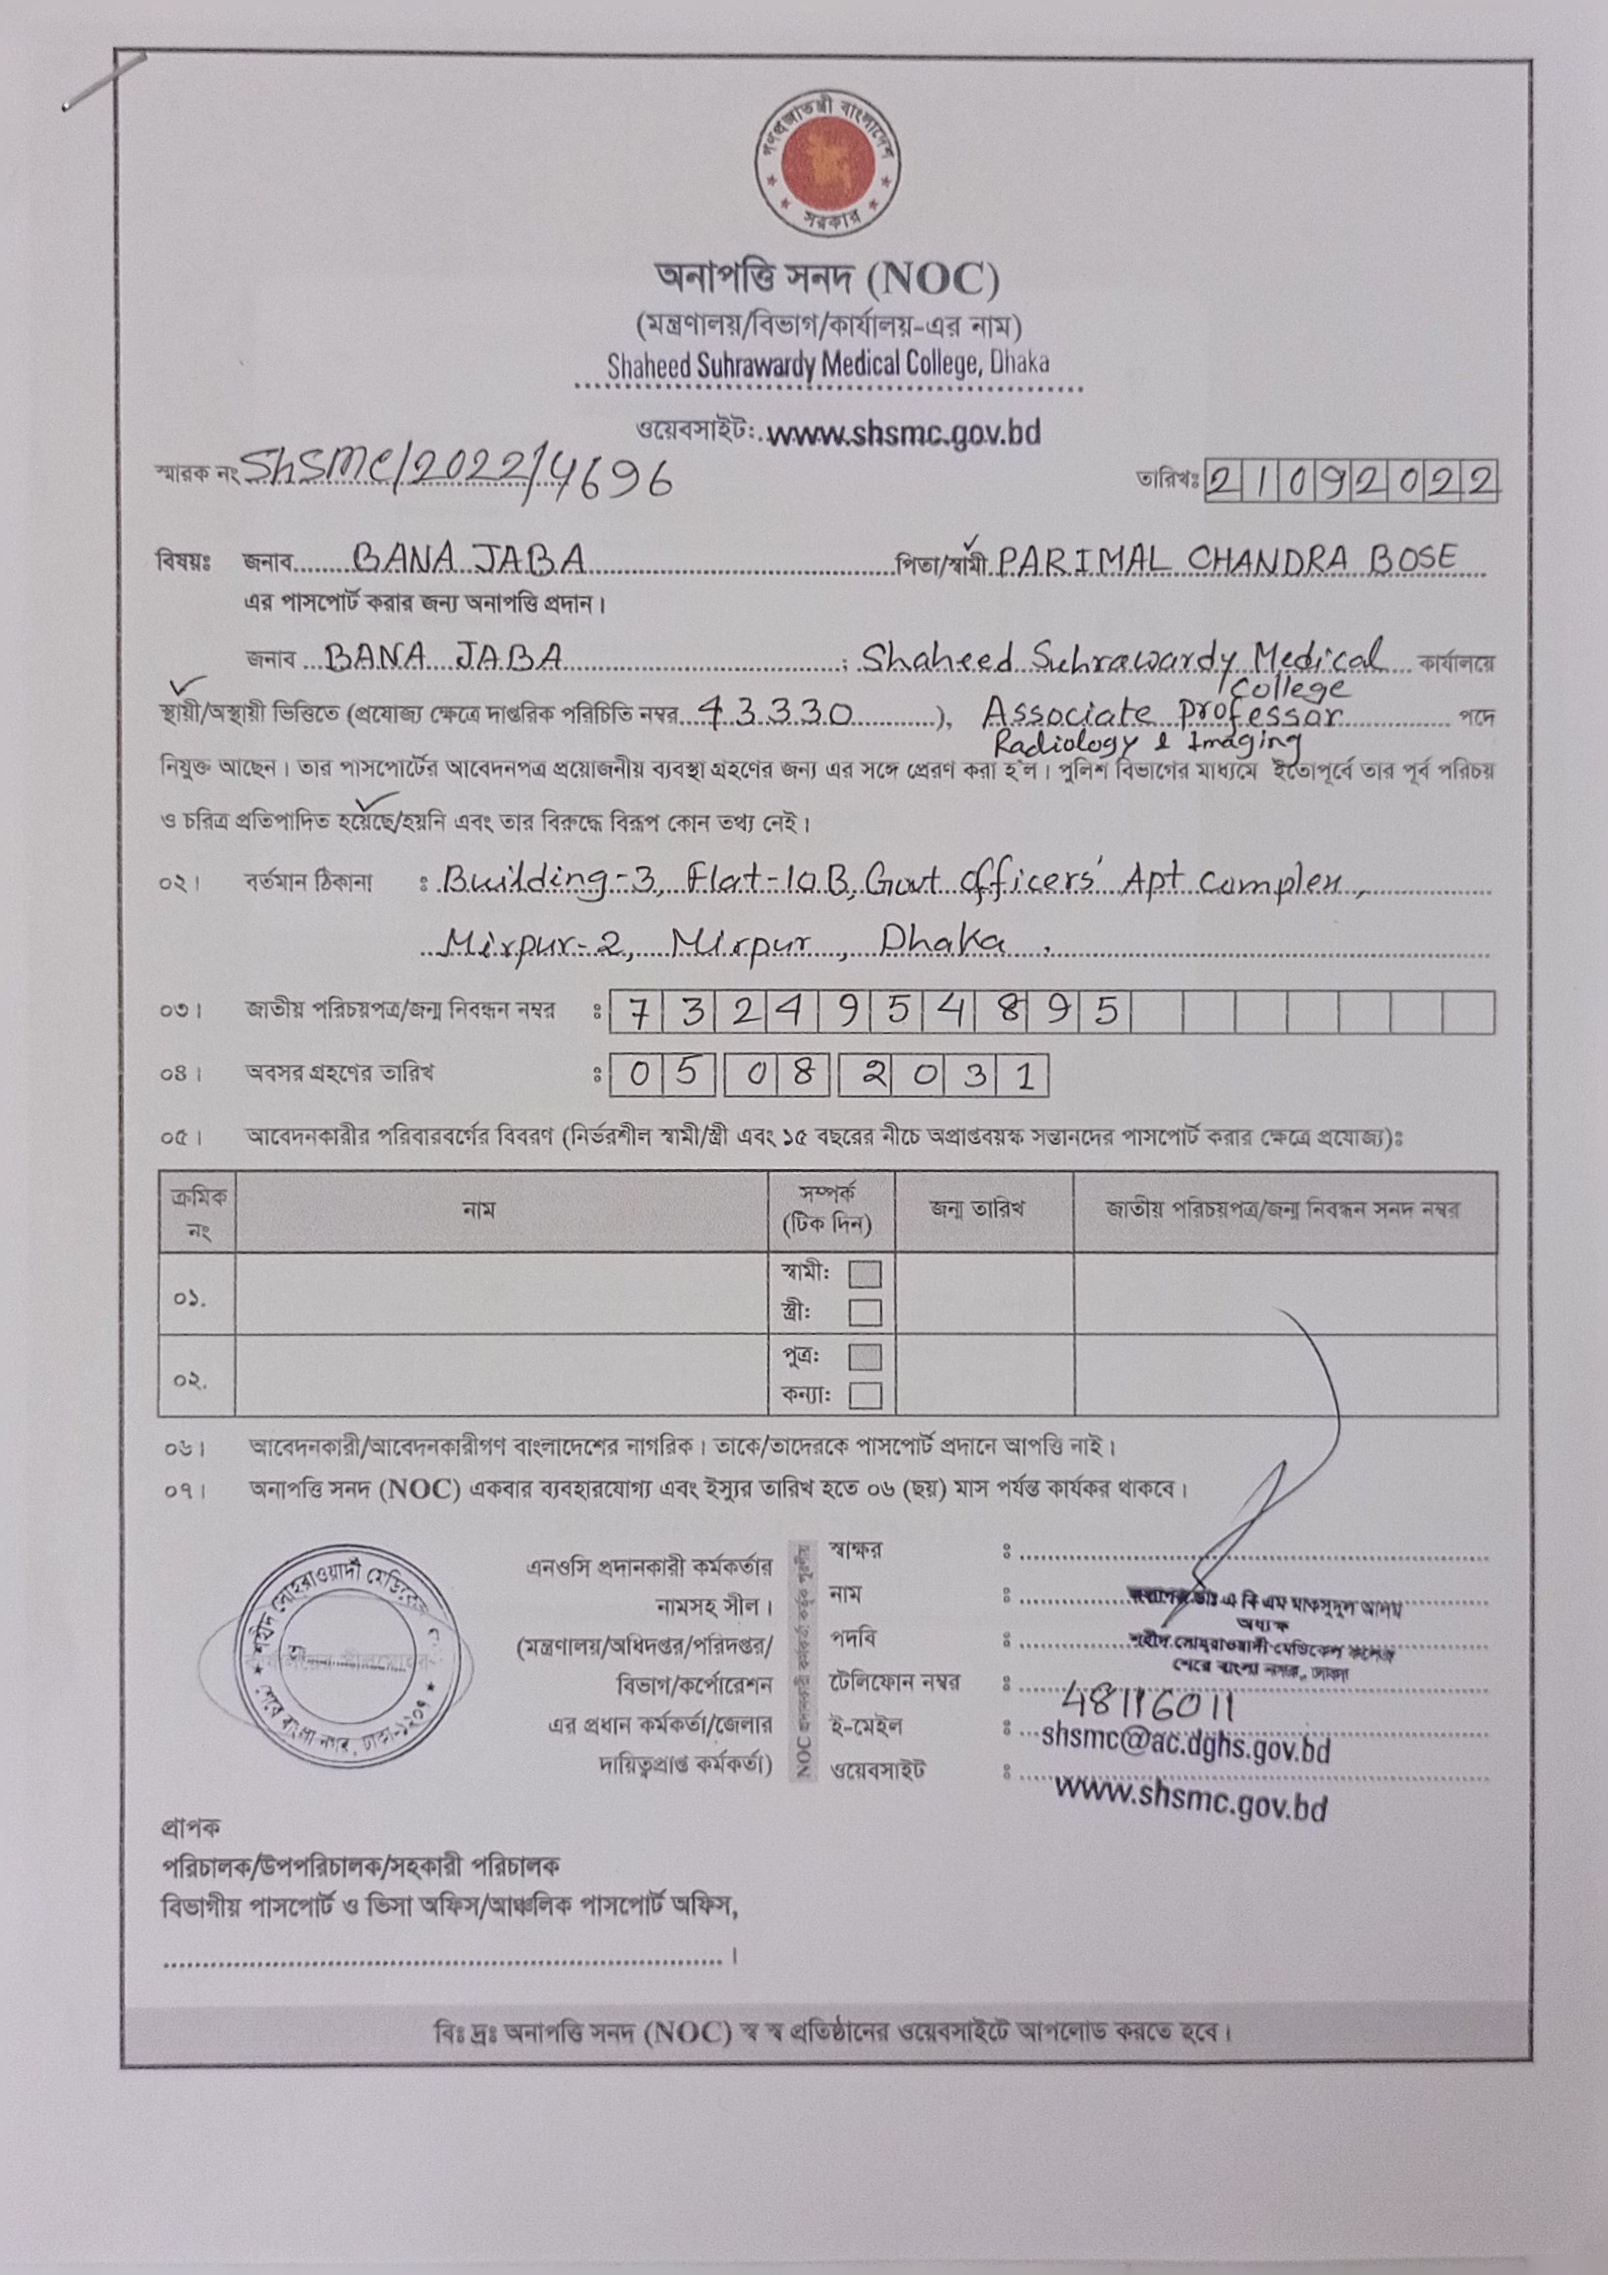 গণপ্রজাতন্ত্রী বাংলাদেশ
সরকার
অনাপত্তি সনদ (NOC)
(মন্ত্রণালয়/বিভাগ/কার্যালয়-এর নাম)
Shaheed Suhrawardy Medical College, Dhaka
ওয়েবসাইট: www.shsmc.gov.bd
স্মারক নং ShSMC/2022/4696 তারিখঃ 21092022
বিষয়ঃ জনাব BANA JABA পিতা/স্বামী PARIMAL CHANDRA BOSE
এর পাসপোর্ট করার জন্য অনাপত্তি প্রদান।
জনাব BANA JABA ; Shaheed Suhrawardy Medical কার্যালয়ে
College
স্থায়ী/অস্থায়ী ভিত্তিতে (প্রযোজ্য ক্ষেত্রে দাপ্তরিক পরিচিতি নম্বর 43330 ), Associate Professor পদে
Radiology & Imaging
নিযুক্ত আছেন। তার পাসপোর্টের আবেদনপত্র প্রয়োজনীয় ব্যবস্থা গ্রহণের জন্য এর সঙ্গে প্রেরণ করা হ'ল। পুলিশ বিভাগের মাধ্যমে ইতোপূর্বে তার পূর্ব পরিচয়
ও চরিত্র প্রতিপাদিত হয়েছে/হয়নি এবং তার বিরুদ্ধে বিরূপ কোন তথ্য নেই।
০২। বর্তমান ঠিকানা : Building-3, Flat-10B, Govt officers' Apt complex,
Mirpur-2, Mirpur, Dhaka.
০৩। জাতীয় পরিচয়পত্র/জন্ম নিবন্ধন নম্বর : 7324954895
০৪। অবসর গ্রহণের তারিখ : 05 08 2031
০৫। আবেদনকারীর পরিবারবর্গের বিবরণ (নির্ভরশীল স্বামী/স্ত্রী এবং ১৫ বছরের নীচে অপ্রাপ্তবয়স্ক সন্তানদের পাসপোর্ট করার ক্ষেত্রে প্রযোজ্য)ঃ
ক্রমিক নং নাম সম্পর্ক (টিক দিন) জন্ম তারিখ জাতীয় পরিচয়পত্র/জন্ম নিবন্ধন সনদ নম্বর
০১. স্বামী:
স্ত্রী:
০২. পুত্র:
কন্যা:
০৬। আবেদনকারী/আবেদনকারীগণ বাংলাদেশের নাগরিক। তাকে/তাদেরকে পাসপোর্ট প্রদানে আপত্তি নাই।
০৭। অনাপত্তি সনদ (NOC) একবার ব্যবহারযোগ্য এবং ইস্যুর তারিখ হতে ০৬ (ছয়) মাস পর্যন্ত কার্যকর থাকবে।
শহীদ সোহরাওয়ার্দী মেডিকেল
শেরে বাংলা নগর, ঢাকা-১২০৭
এনওসি প্রদানকারী কর্মকর্তার
নামসহ সীল।
(মন্ত্রণালয়/অধিদপ্তর/পরিদপ্তর/
বিভাগ/কর্পোরেশন
এর প্রধান কর্মকর্তা/জেলার
দায়িত্বপ্রাপ্ত কর্মকর্তা)
NOC প্রদানকারী কর্মকর্তা কর্তৃক পূরণীয়
স্বাক্ষর :
নাম : অধ্যাপক ডাঃ এ বি এম মাকসুদুল আলম
অধ্যক্ষ
পদবি : শহীদ সোহরাওয়ার্দী মেডিকেল কলেজ
শেরে বাংলা নগর, ঢাকা
টেলিফোন নম্বর : 48116011
ই-মেইল : shsmc@ac.dghs.gov.bd
ওয়েবসাইট : www.shsmc.gov.bd
প্রাপক
পরিচালক/উপপরিচালক/সহকারী পরিচালক
বিভাগীয় পাসপোর্ট ও ভিসা অফিস/আঞ্চলিক পাসপোর্ট অফিস,
।
বিঃ দ্রঃ অনাপত্তি সনদ (NOC) স্ব স্ব প্রতিষ্ঠানের ওয়েবসাইটে আপলোড করতে হবে।